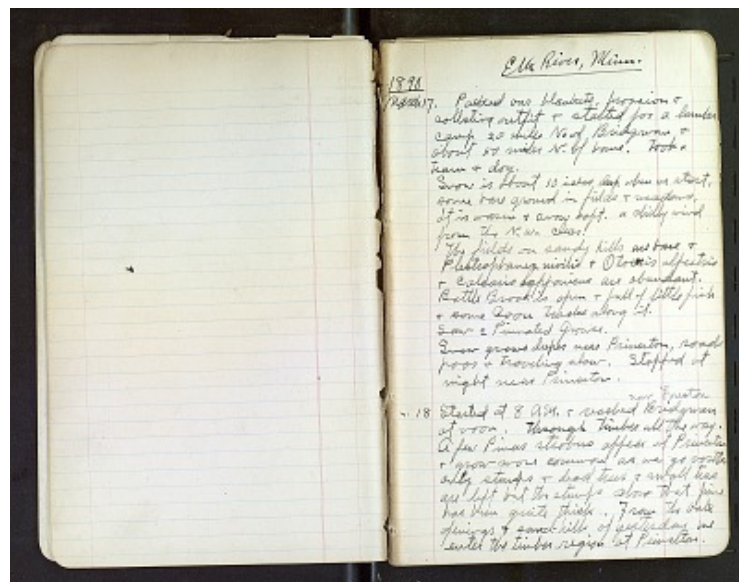 Elk River, Minn.
1890
March 17. Packed our blankets, provision &
collecting outfit & started for a lumber
camp 20 miles N. of Bridgman &
about 50 miles N. of home. Took
team & dog.
Snow is about 10 inches deep when we start,
some bare ground in fields & meadows,
it is warm & snow soft. a chilly wind
from the N.W. clear.
The fields on sandy hills are bare &
Plectrophanes nivilis & Otocoris alpestris
& Calcarius lapponicus are abundant.
Battle Brook is open & full of little fish
& some Coon tracks along it.
Saw 2 Pinnated Grouse.
Snow grows deeper near Princeton, road
poor & traveling slow. Stopped at
night near Princeton.
now
" 18 Started at 8 A.M. & reached Bridgman
at noon. Through timber all the way.
A few Pinus strobus appear at Princeton
& grow more common as we go north
only stumps & dead trees & small trees
are left but the stumps show that pine
has been quite thick. From the oak
openings & sand hills of yesterday we
enter the timber region at Princeton.